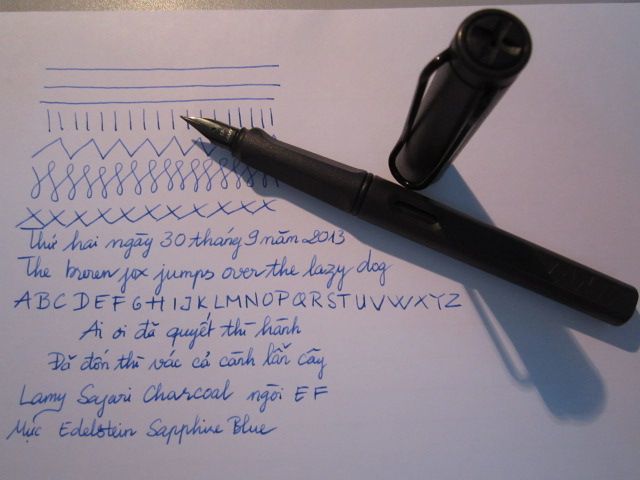 Thứ hai ngày 30 tháng 9 năm 2013
The brown fox jumps over the lazy dog
ABCDEFGHIJKLMNOPQRSTUVWXYZ
Ai ơi đã quyết thì hành
Đã đốn thì vác cả cành lẫn cây
Lamy Safari Charcoal ngòi EF
Mực Edelstein Sapphire Blue
LAMY